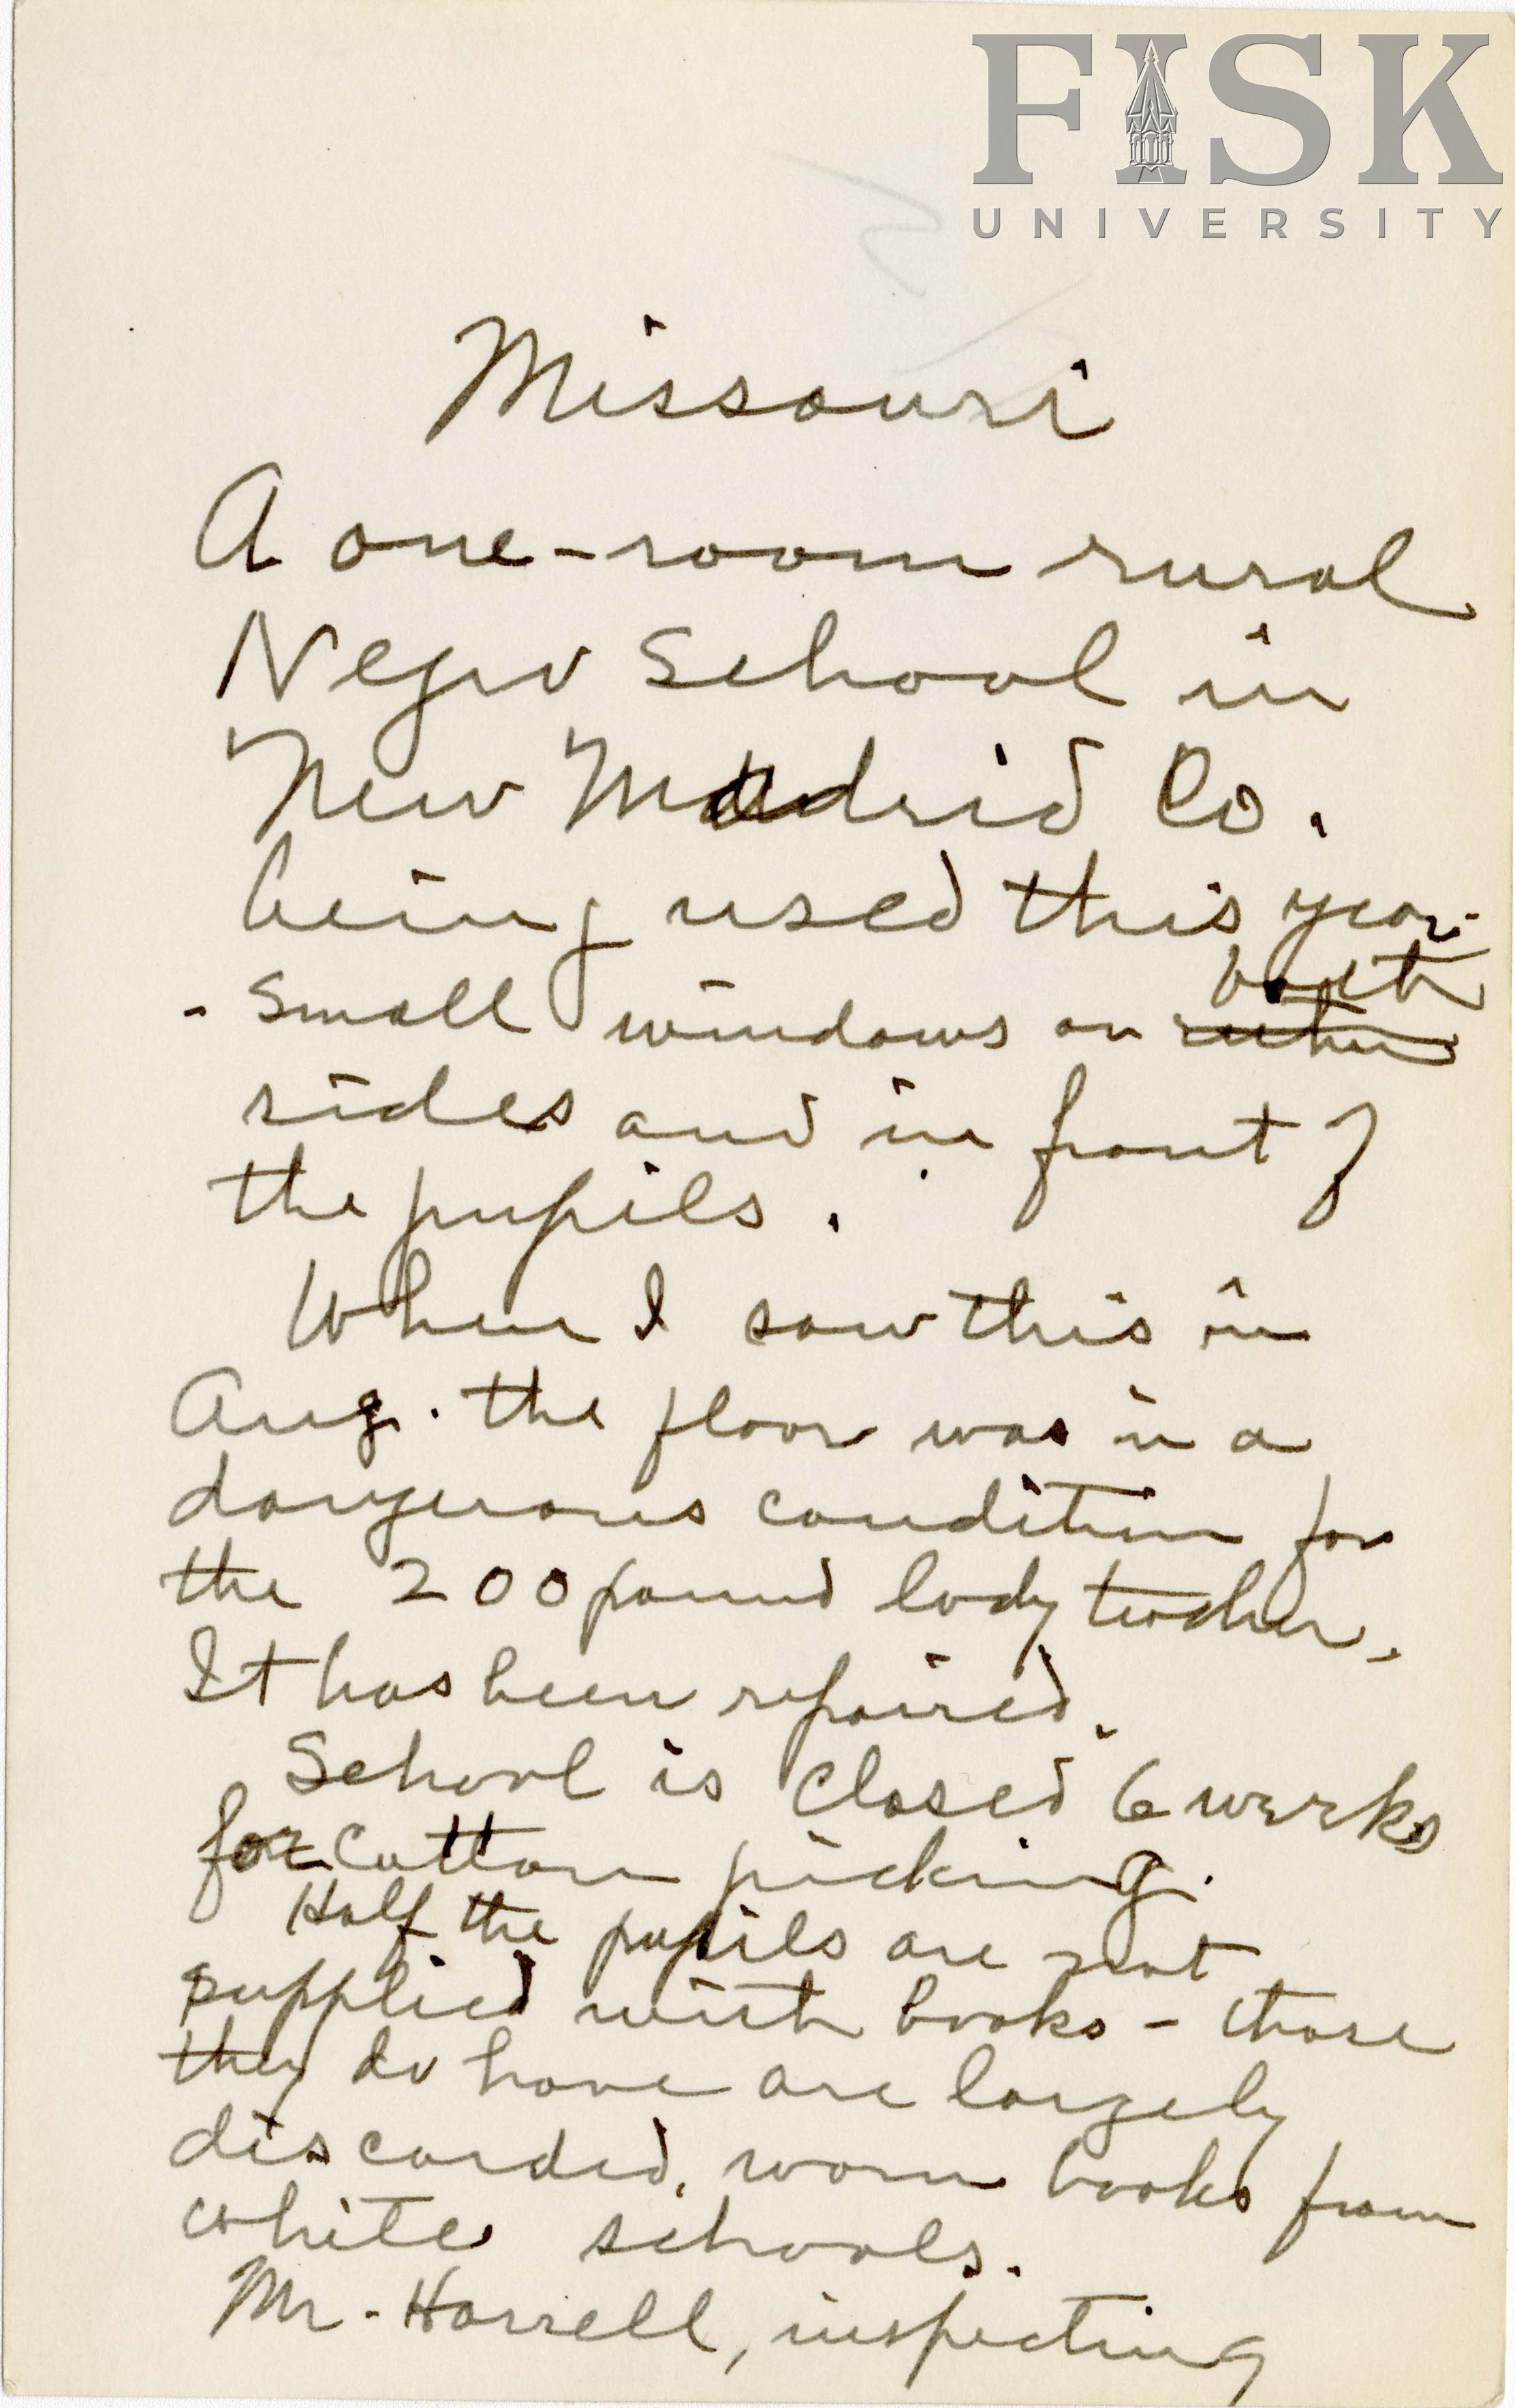 FISK
UNIVERSITY
Missouri
A one-room rural
Negro School in
New Madrid Co.
being used this year.
both
- Small windows on either
sides and in front of
the pupils.
When I saw this in
Aug. the floor was in a
dangerous condition for
the 200 pound lady teacher.
It has been repaired.
School is closed 6 weeks
for cotton picking.
Half the pupils are not
supplied with books - those
they do have are largely
discarded, worn books from
white schools.
Mr. Harrell, inspecting